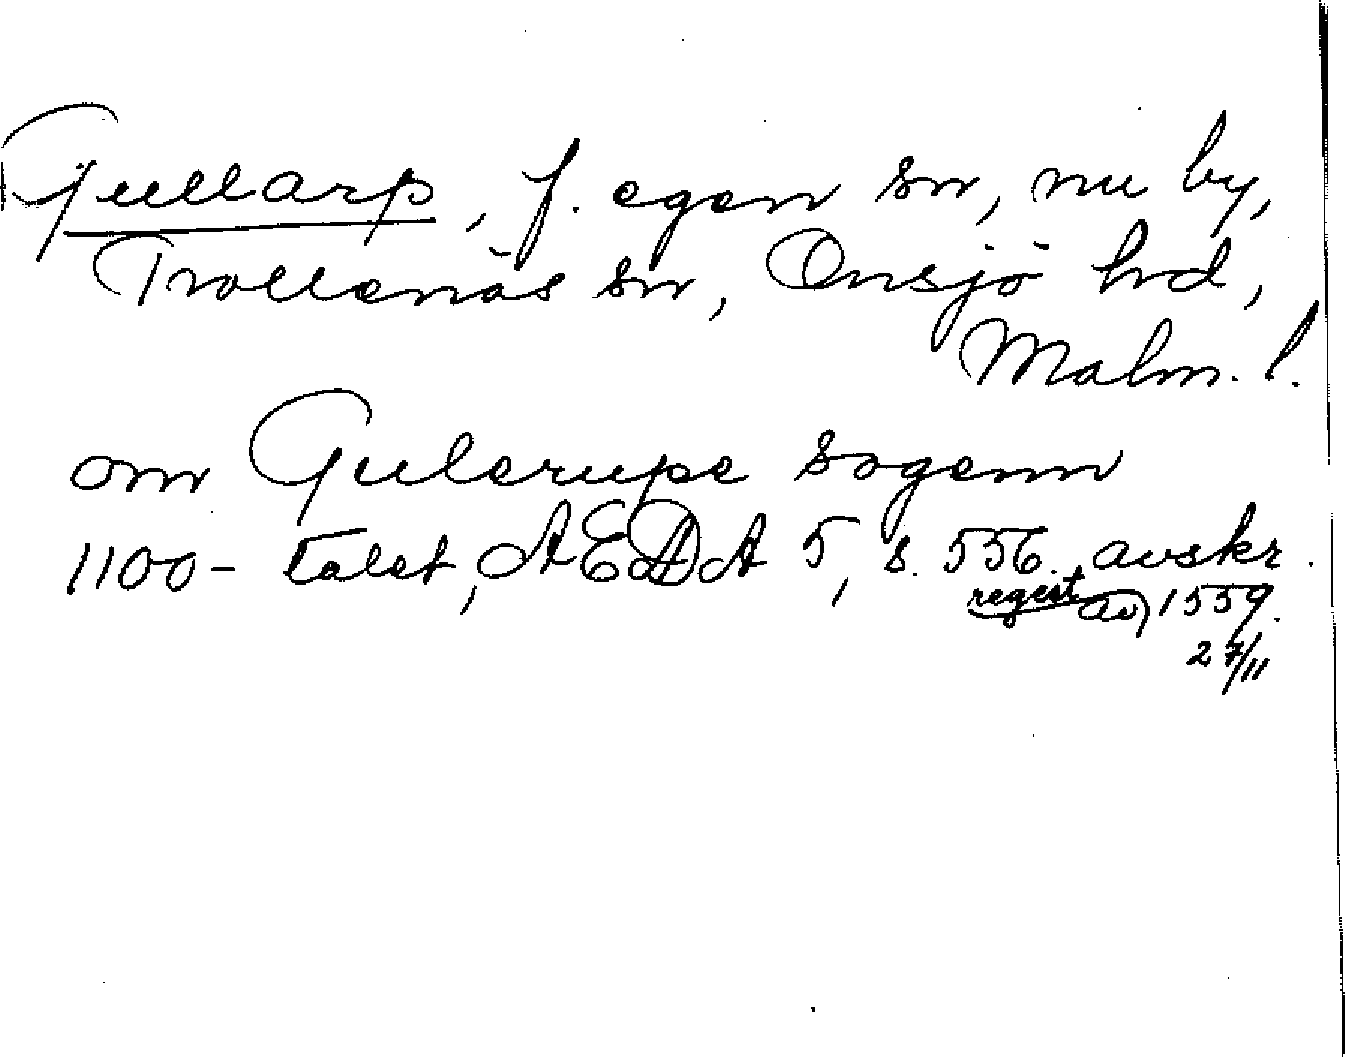 Gullarp, f. egen sn, nu by,
Trollenäs sn, Onsjö hd,
Malm. l.
om Gulerupe sogenn
1100-talet, AEDA 5, s. 556. avskr.
regest av 1559.
27/11